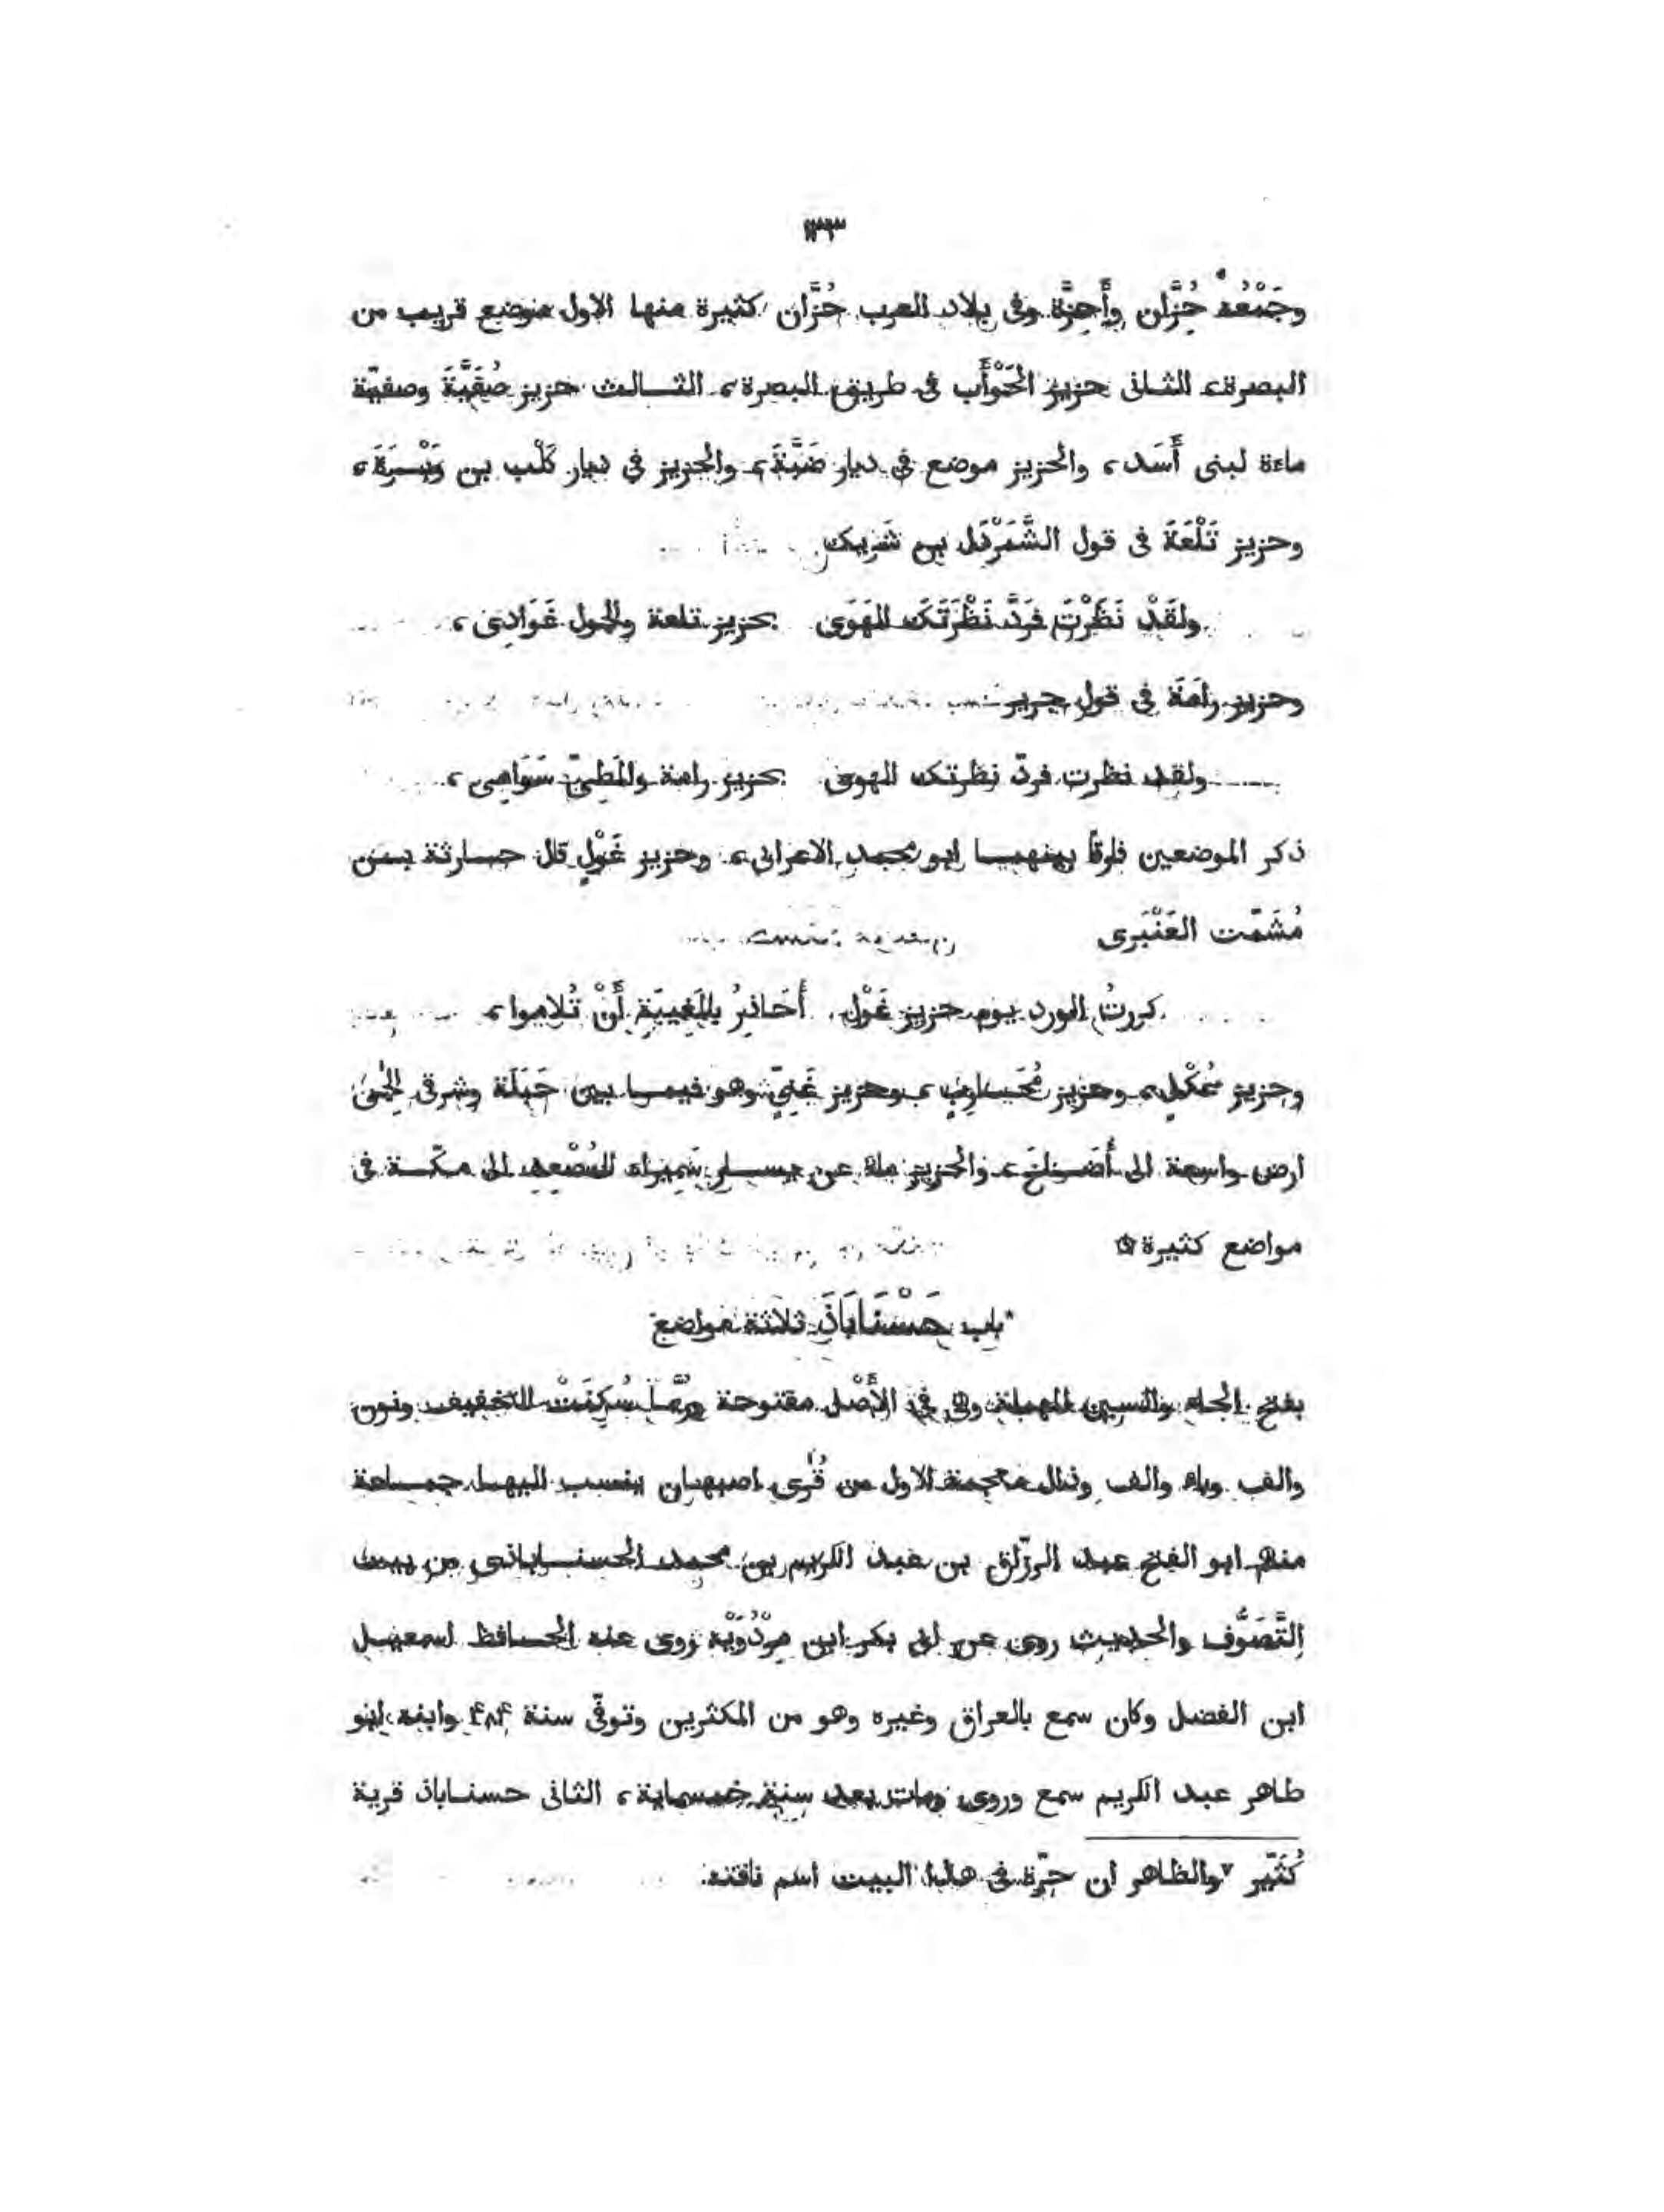 ١٣٣
وجَمْعُهُ حُزَّان وأَحِزَّة وفى بلاد العرب حُزَّان كثيرة منها الاول موضع قريب من
البصرة، الثانى حزيز الحَوْأَب فى طريق البصرة، الثـالث حزيز صُفَيَّةَ وصفيّة
ماءة لبنى أَسَد، والحزيز موضع فى ديار ضَبَّةَ، والحزيز فى ديار كَلْب بن وَبْـرَةَ،
وحزيز تَلْعَةَ فى قول الشَّمَرْدَل بن شَرِيك
ولقَدْ نَظَرْتَ فرَدَّ نَظْرَتَكَ الهَوَى بحزيز تلعة والحمول غَوَادِى،
وحزيز رامَةَ فى قول جرير
ولقد نظرت فردّ نظرتك الهوى بحزيز رامة والمَطِىّ سَوَامِى،
ذكر الموضعين فارقًا بينهما ابو محمد الاعرابى، وحزيز غَوْلٍ قال حـارثة بـن
مُشَمّت العَنْبَرى
كررتُ الورد يوم حزيز غَوْل أُحَاذِرُ بالمَغِيبَةِ أَنْ تُلاموا،
وحزيز عُكْلٍ، وحزيز مُحَـارِبٍ، وحزيز غَنِىّ وهو فيمـا بين جَبَلَة وشرقى الحِمَى
ارض واسعة الى أُضَـاخَ، والحزيز ماء عن يسـار سَمِيراء للمُصْعِد الى مكّـة فى
مواضع كثيرة ۞
باب حَسْنَابَاذَ ثلاثة مواضع
بفتح الحاء والسين المهملة وفى فى الأَصْل مفتوحة ورُبَّما سُكِنَتْ للتخفيف ونون
والف وباء والف وذال معجمة الاول من قُرَى اصبهان ينسب اليهـا جمـاعة
منهم ابو الفتح عبد الرزّاق بن عبد الكريم بن محمد الحسنـاباذى من بيت
التَّصَوُّف والحديث روى عن ابى بكر ابن مِرْدُوَيْه روى عنه الحـافظ اسمعيـل
ابن الفضل وكان سمع بالعراق وغيره وهو من المكثرين وتوفّى سنة ۴٨۴ وابنه ابو
طاهر عبد الكريم سمع وروى ومات بعد سنة خمسماية، الثانى حسنـاباذ قرية
كُثَيّر ٧ والظاهر ان حزّة فى هذا البيت اسم ناقته.